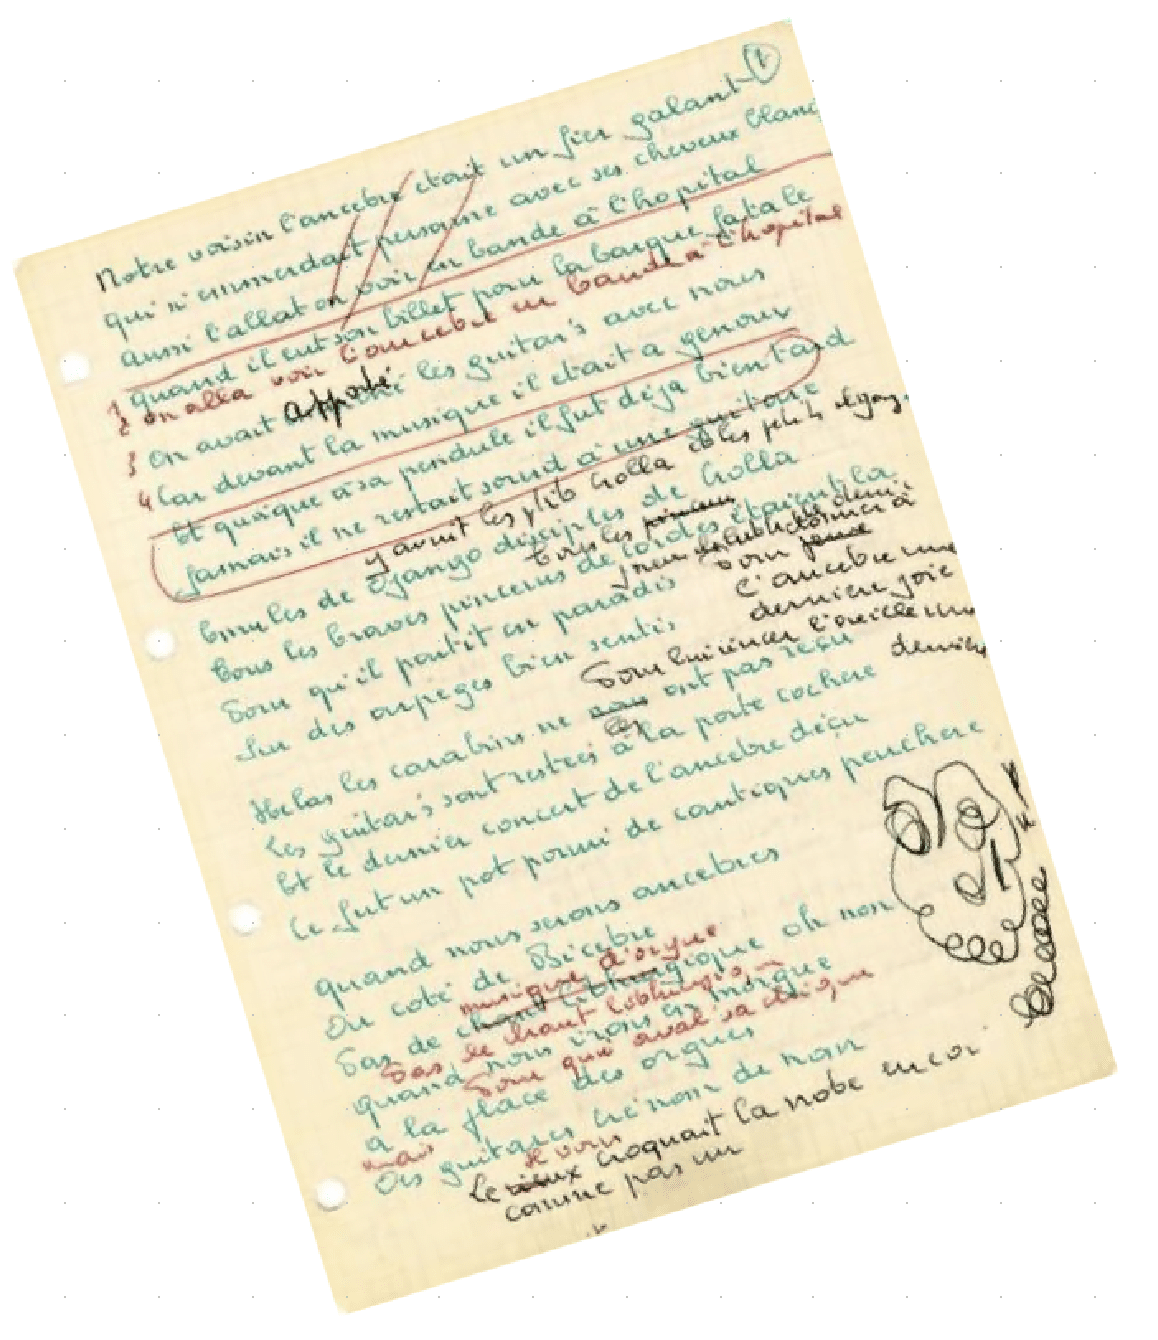 1
Notre voisin l'ancebre etait un fier galant
qui n'emmerdait personne avec ses cheveux blancs
aussi l'allat on voir en bande à l'hopital
quand il eut son billet pour la barque fatale
1
2 on alla voir l'ancebre en bande à l'hopital
3 On avait apporté les guitar's avec nous
4 Car devant la musique il etait a genoux
Et quoique a sa pendule il fut déja bien tard
Jamais il ne restait sourd à une guitare
y avait les ptits Crolla et les petits
Emules de Django disciples de Crolla
tous les
Tous les braves pinceurs de cordes étaient la
Pour à
Pour qu'il partit en paradis
l'ancebre une
derniere joie
Sur des arpeges bien sentis
Pour lui rincer l'oreille une
derniere
Helas les carabins ne nous ont pas reçu
les
Les guitar's sont restees à la porte cochere
Et le dernier concert de l'ancebre déçu
Ce fut un pot pourri de cantiques peuchere
quand nous serons ancebres
Du coté de Bicebre
musique d'orgue
Pas de chant liturgique oh non
Pas de chant liturgique
quand nous irons en morgue
Pour qui aval' sa chique
a la place des orgues
mais
Des guitares cré nom de nom
se voir
le vieux croquait la note encor
comme pas un